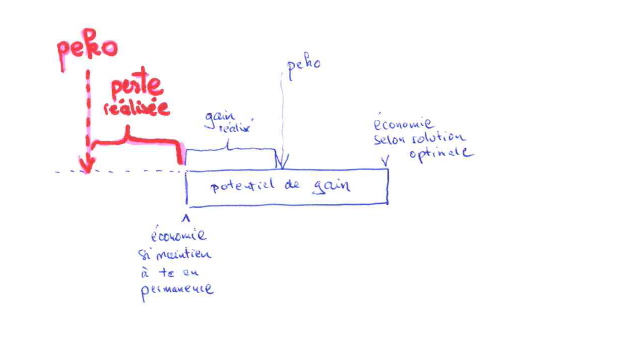 peko
perte
réalisée
peko
gain
réalisé
économie
selon solution
optimale
potentiel de gain
économie
si maintien
à tc en
permanence